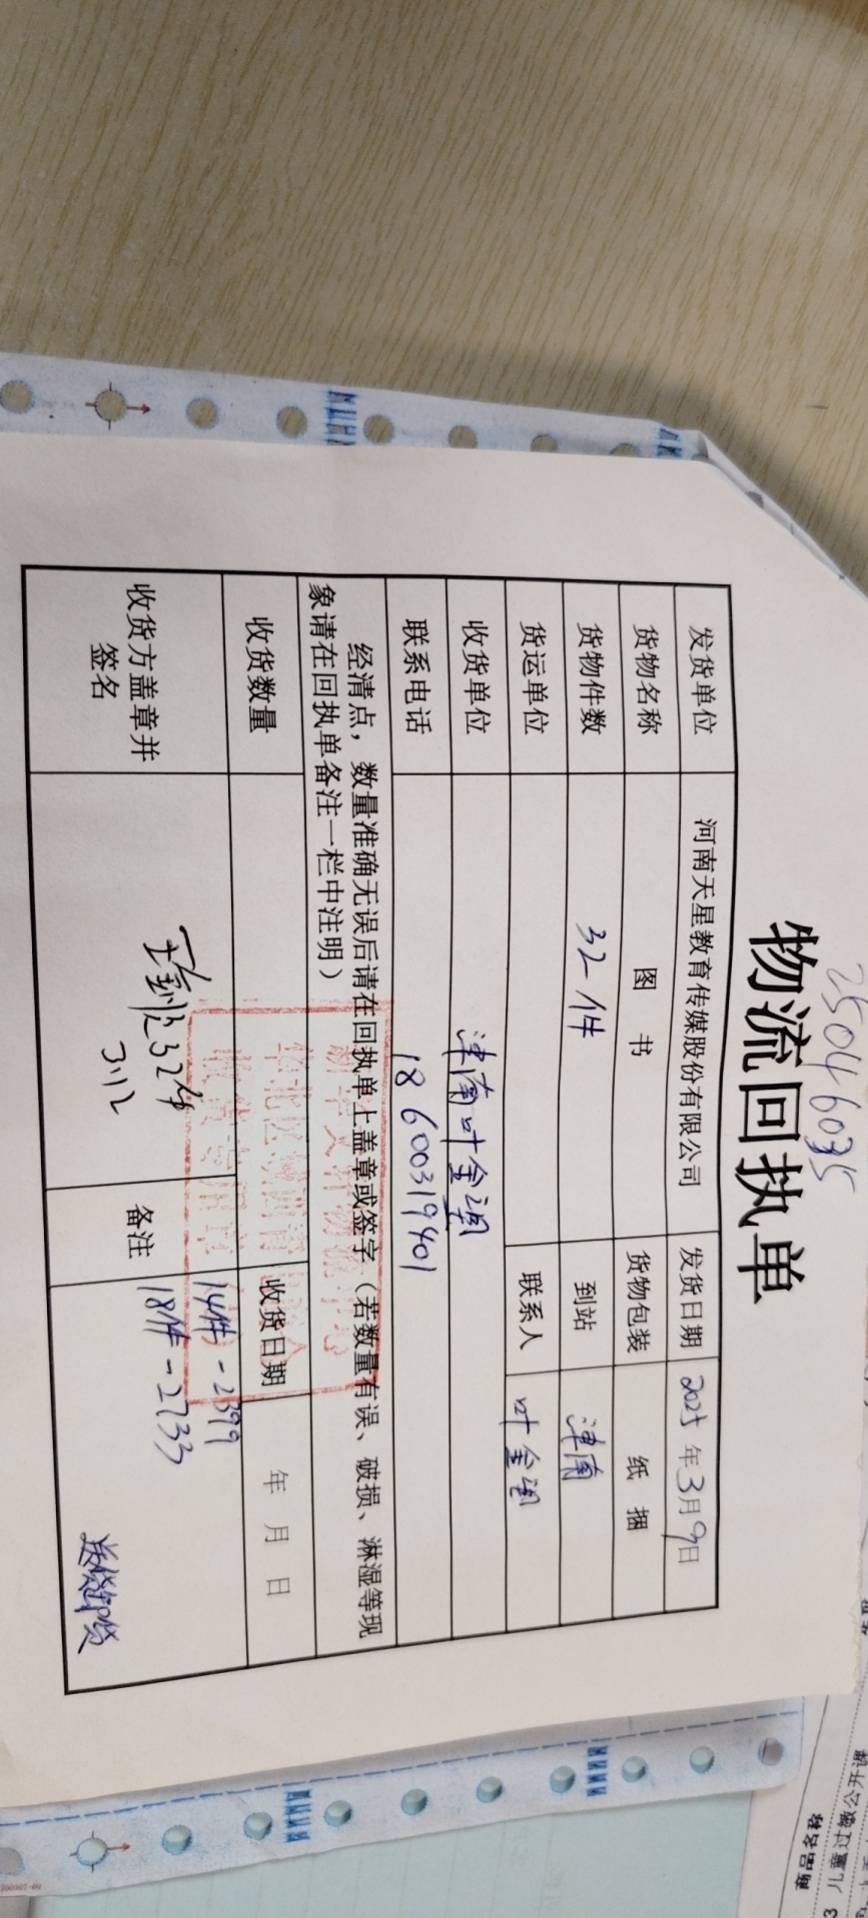 25046035
物流回执单
发货单位 河南天星教育传媒股份有限公司 发货日期 2025年3月9日
货物名称 图书 货物包装 纸捆
货物件数 32件 到站 津南
货运单位 联系人 叶金
收货单位 津南叶金
联系电话 18600319401
经清点，数量准确无误后请在回执单上盖章或签字（若数量有误、破损、淋湿等现
象请在回执单备注一栏中注明）
收货数量 收货日期 年 月 日
收货方盖章并
签名
32件
3.12
备注
14件-2399
18件-2733
送货卸货